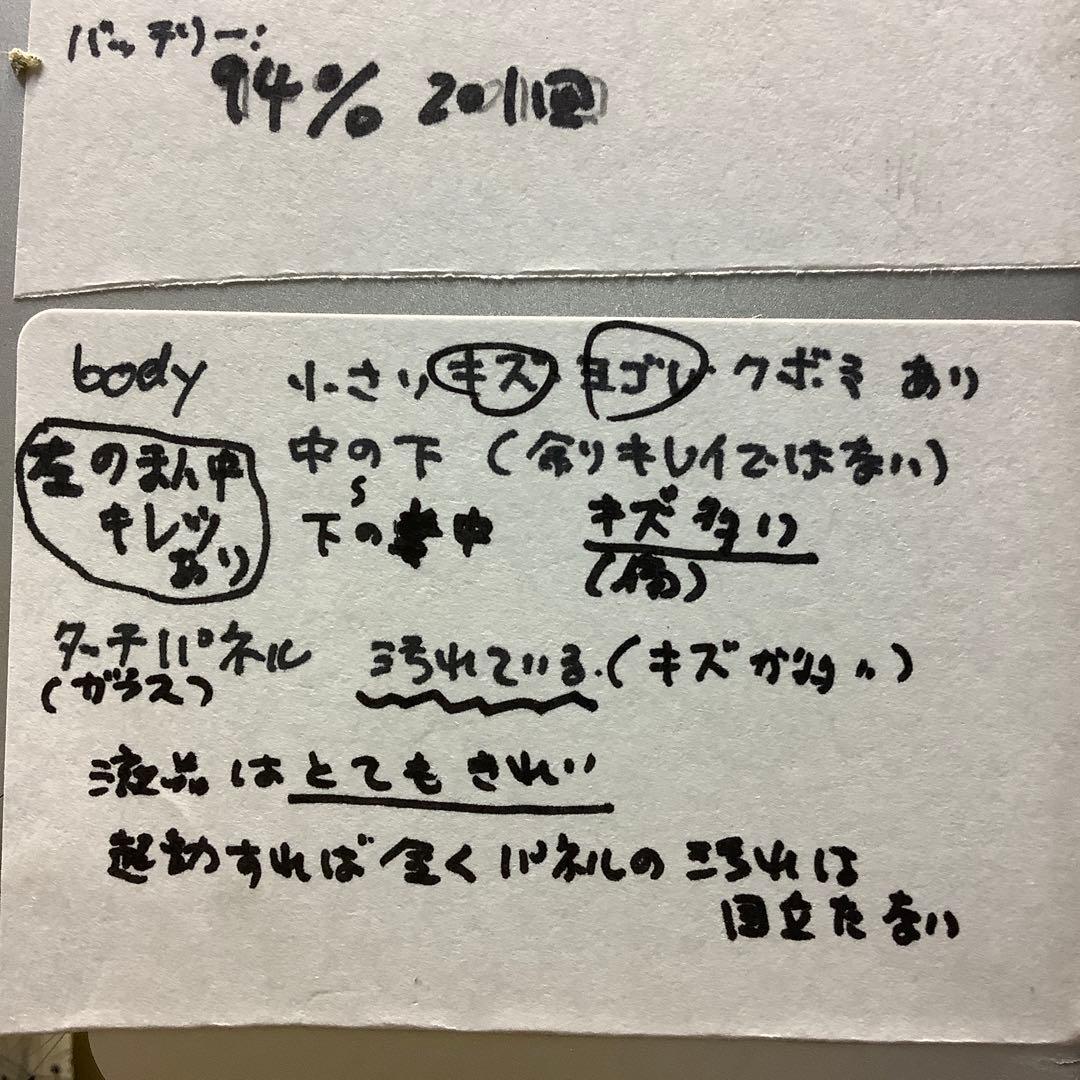 バッテリー:
94% 201回
body 小さい キズ ヨゴレ・クボミ あり
左のまん中
キレツ
あり
中の下 (余りキレイではない)
S
下の 中 キズ多い
(傷)
タッチパネル 汚れている.(キズが多い)
(ガラス)
液晶はとてもきれい
起動すれば全くパネルの汚れは
目立たない